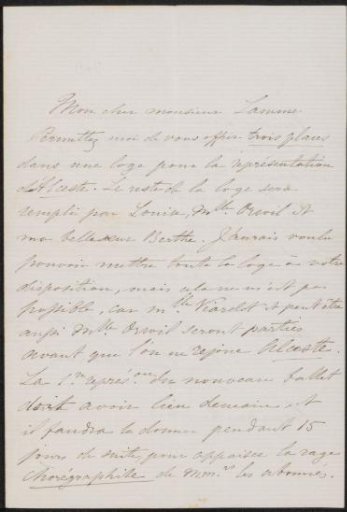 Mon cher monsieur Lamme
Permettez moi de vous offrir trois places
dans une loge pour la représentation
d'Alceste. Le reste de la loge sera
rempli par Louise, Mlle Orwil et
ma belle sœur Berthe. J'aurais voulu
pouvoir mettre toute la loge à votre
disposition, mais cela ne m'est pas
possible, car Mlle Viardot et peut être
aussi Mlle Orwil seront parties
avant que l'on ne rejoue Alceste.
La 1re représon du nouveau ballet
doit avoir lieu demain et
il faudra le donner pendant 15
jours de suite, pour appaiser la rage
chorégraphile de Mmrs les abonnés.